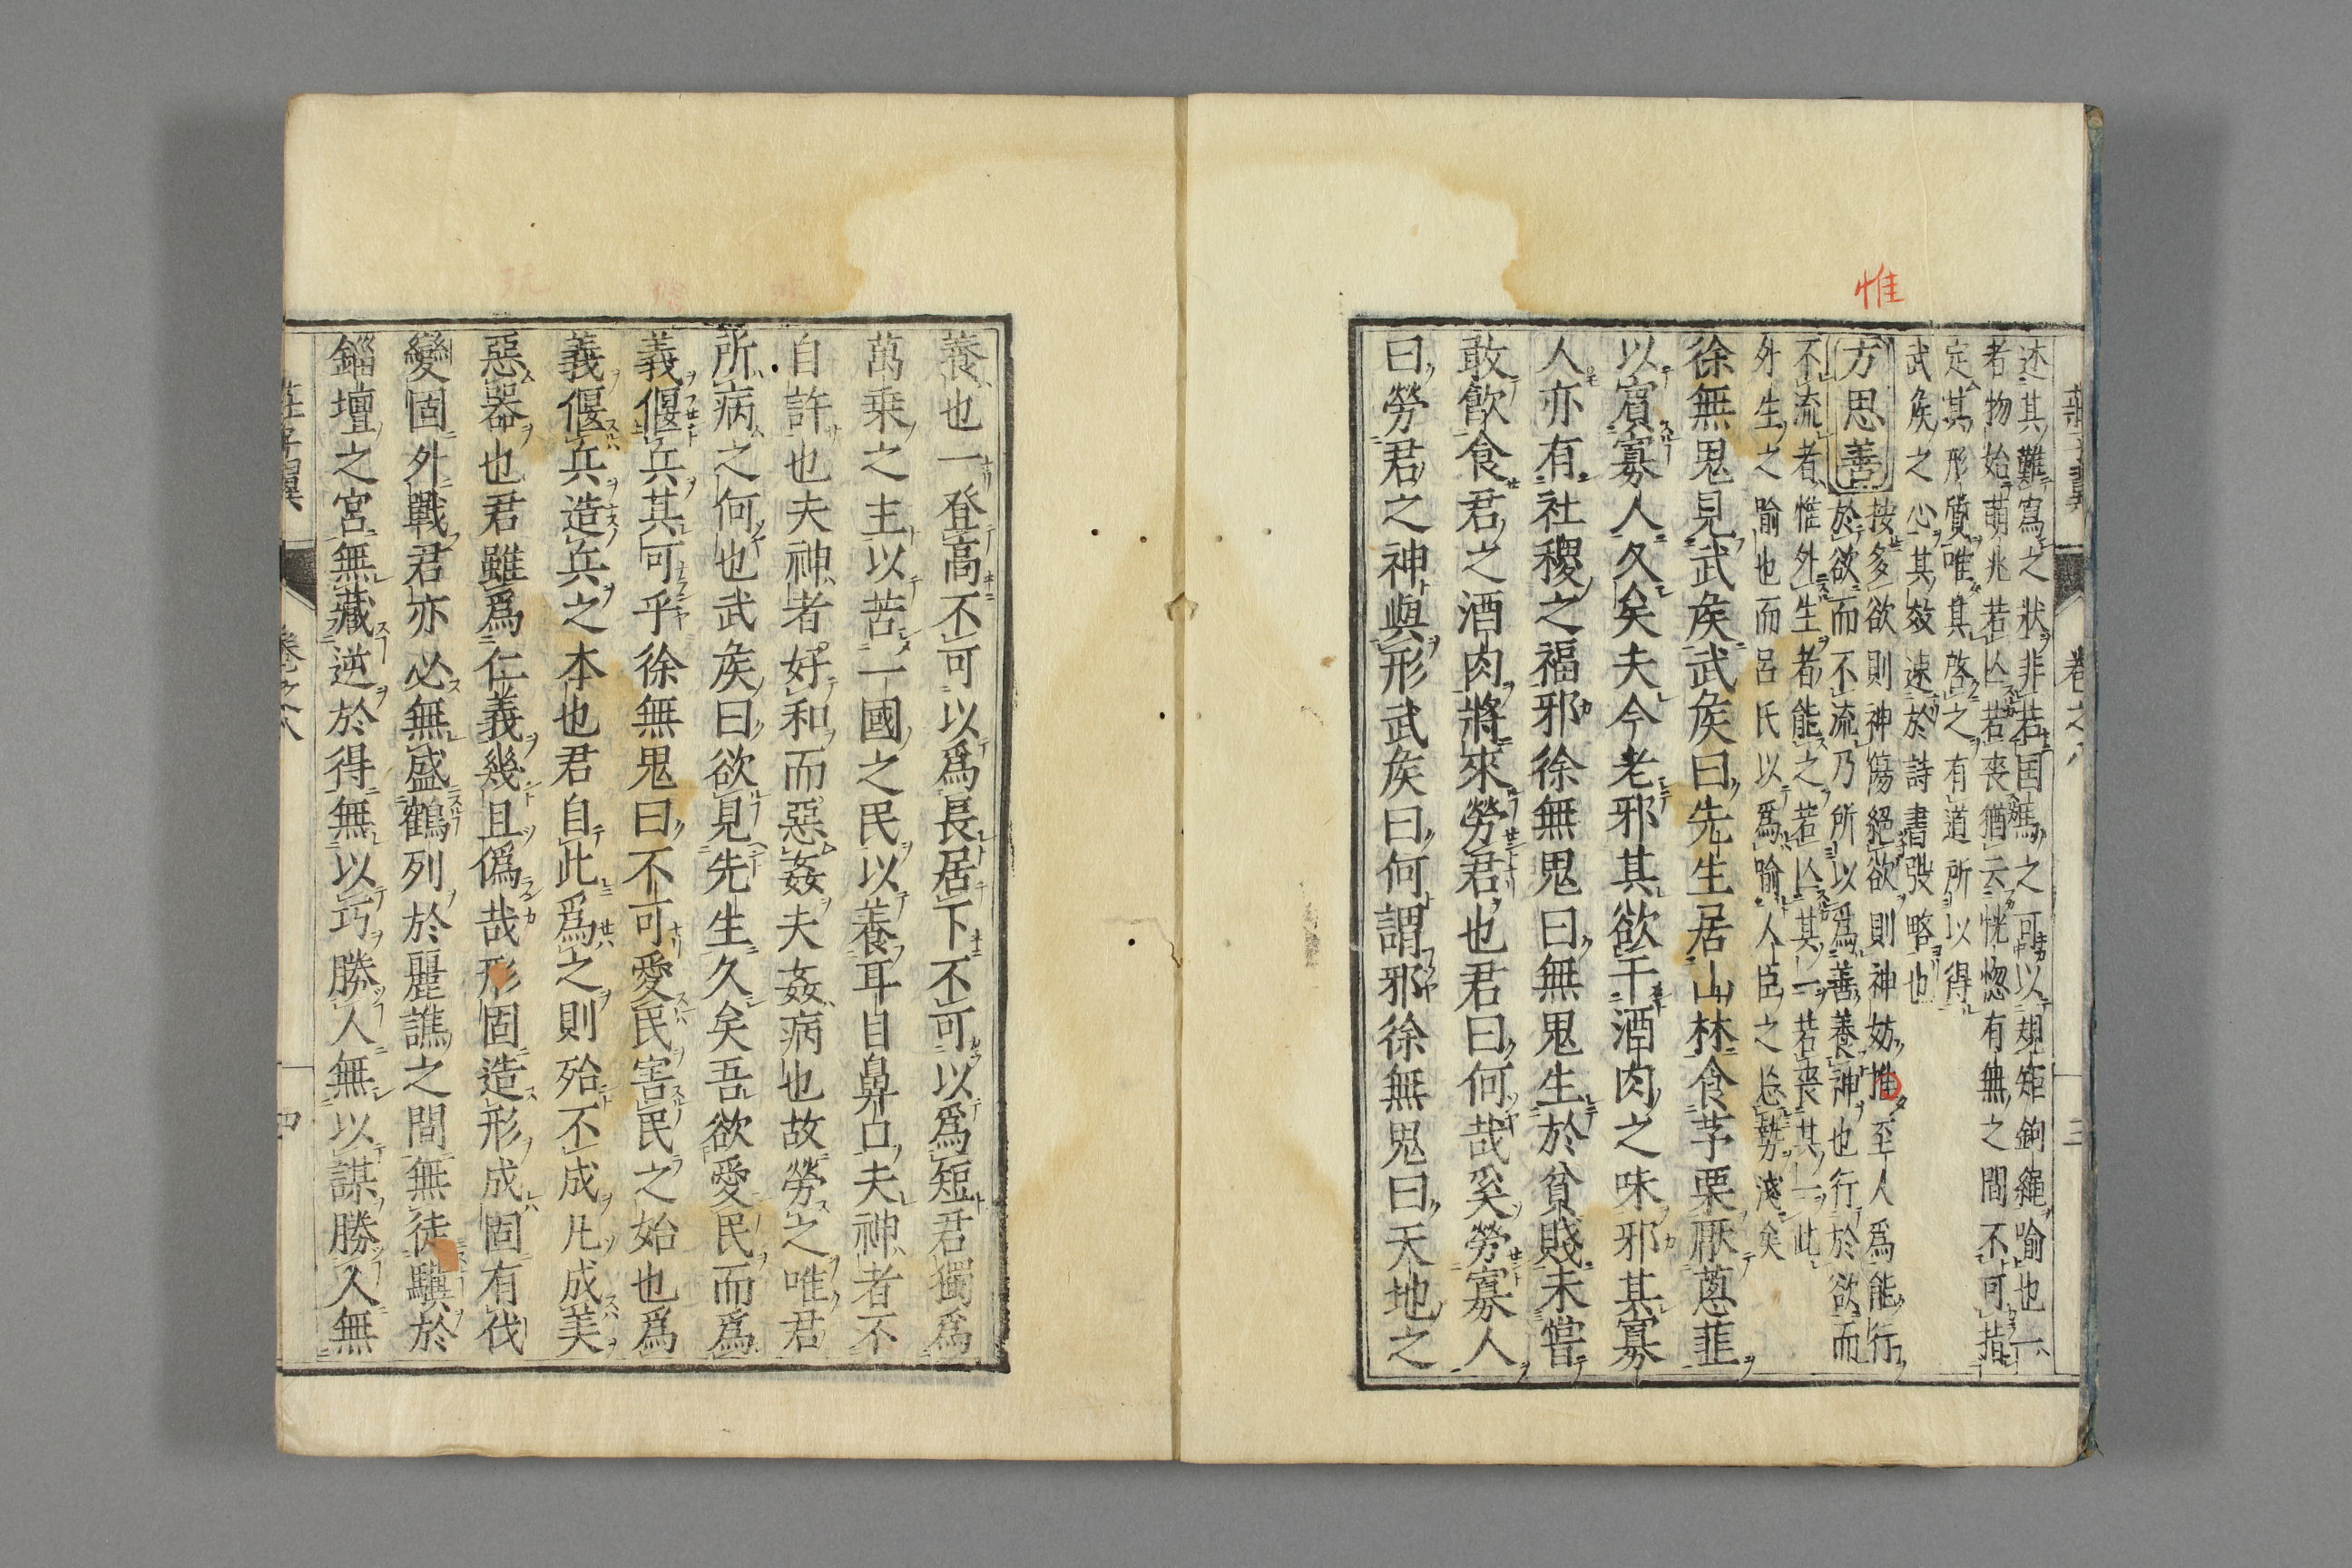 惟
述其難寫之狀非若国馬之可以規矩鉤繩喻也一
者物始萌兆若亾若喪猶云恍惚有無之間不可指
定其形質唯其啓之有道所以得
武矦之心其效速於詩書弢略也
方思善
按多欲則神傷絕欲則神妨惟至人爲能行
於欲而不流乃所以爲善養神也行於欲而
不流者惟外生者能之若亾其一若喪其一此
外生之喻也而呂氏以爲喻人臣之忘勢淺矣
徐無鬼見武矦武矦曰先生居山林食芧栗厭蔥韭
以賓寡人久矣夫今老邪其欲干酒肉之味邪其寡
人亦有社稷之福邪徐無鬼曰無鬼生於貧賤未嘗
敢飮食君之酒肉將來勞君也君曰何哉奚勞寡人
曰勞君之神與形武矦曰何謂邪徐無鬼曰天地之
卷之八
三
養也一登高不可以爲長居下不可以爲短君獨爲
萬乘之主以苦一國之民以養耳目鼻口夫神者不
自許也夫神者好和而惡姦夫姦病也故勞之唯君
所病之何也武矦曰欲見先生久矣吾欲愛民而爲
義偃兵其可乎徐無鬼曰不可愛民害民之始也爲
義偃兵造兵之本也君自此爲之則殆不成凡成美
惡器也君雖爲仁義幾且僞哉形固造形成固有伐
變固外戰君亦必無盛鶴列於麗譙之間無徒驥於
錙壇之宮無藏逆於得無以巧勝人無以謀勝人無
莊子翼
卷之八
四